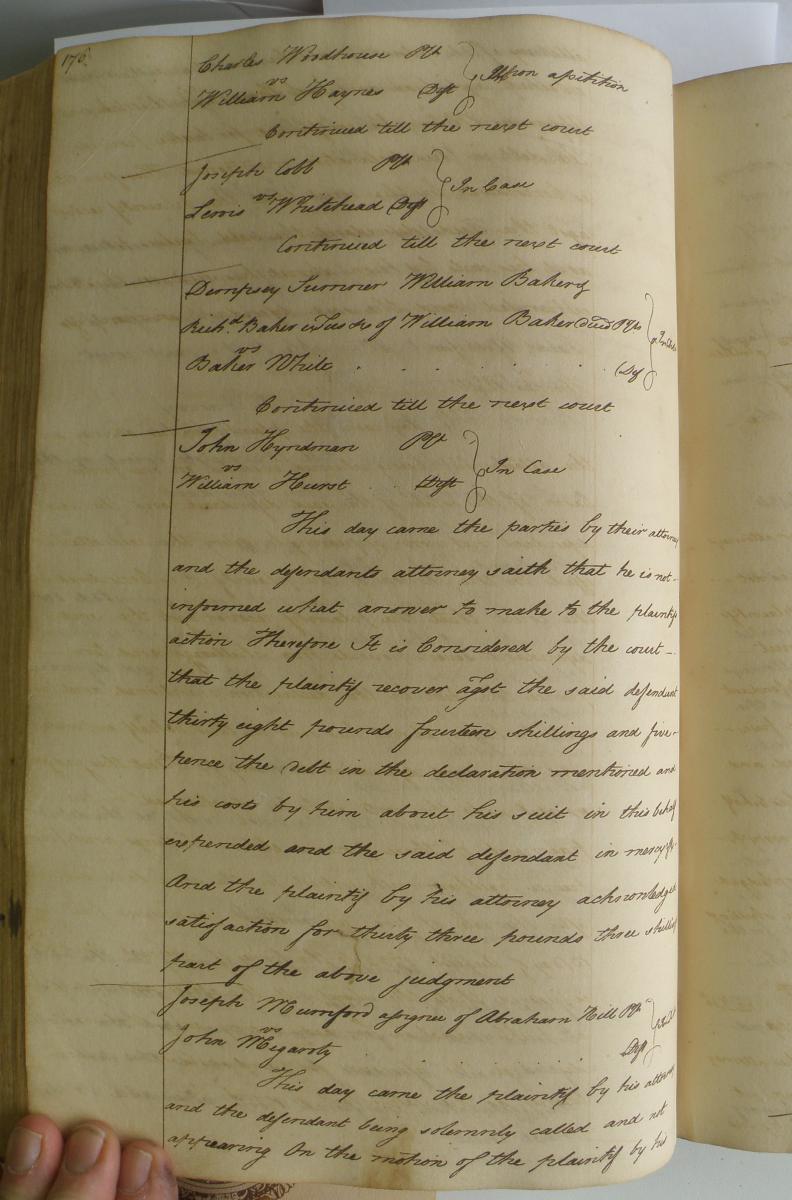 176
Charles Woodhouse Plt
vs } Upon a petition
William Haynes Deft
Continued till the next court
Joseph Cobb Plt
vs } In Case
Lewis Whitehead Deft
Continued till the next court
Dempsey Sumner William Baker &
Richd. Baker exTus &c of William Baker decd Plts
vs
Baker White . . . . . . Def
Continued till the next court
John Hyndman Plt
vs } In Case
William Hurst . . Deft
This day came the parties by their attorney
and the defendants attorney saith that he is not
informed what answer to make to the plaintifs
action Therefore It is Considered by the court
that the plaintif recover agst the said defendant
thirty eight pounds fourteen shillings and five
pence the debt in the declaration mentioned and
his costs by him about his suit in this behalf
expended and the said defendant in mercy &c.
And the plaintif by his attorney acknowledged
satisfaction for thirty three pounds three shillings
part of the above judgment
Joseph Mumford assignee of Abraham Hill Plt
vs
John Megarity . . . . . Deft
This day came the plaintif by his attorney
and the defendant being solemnly called and not
appearing On the motion of the plaintif by his